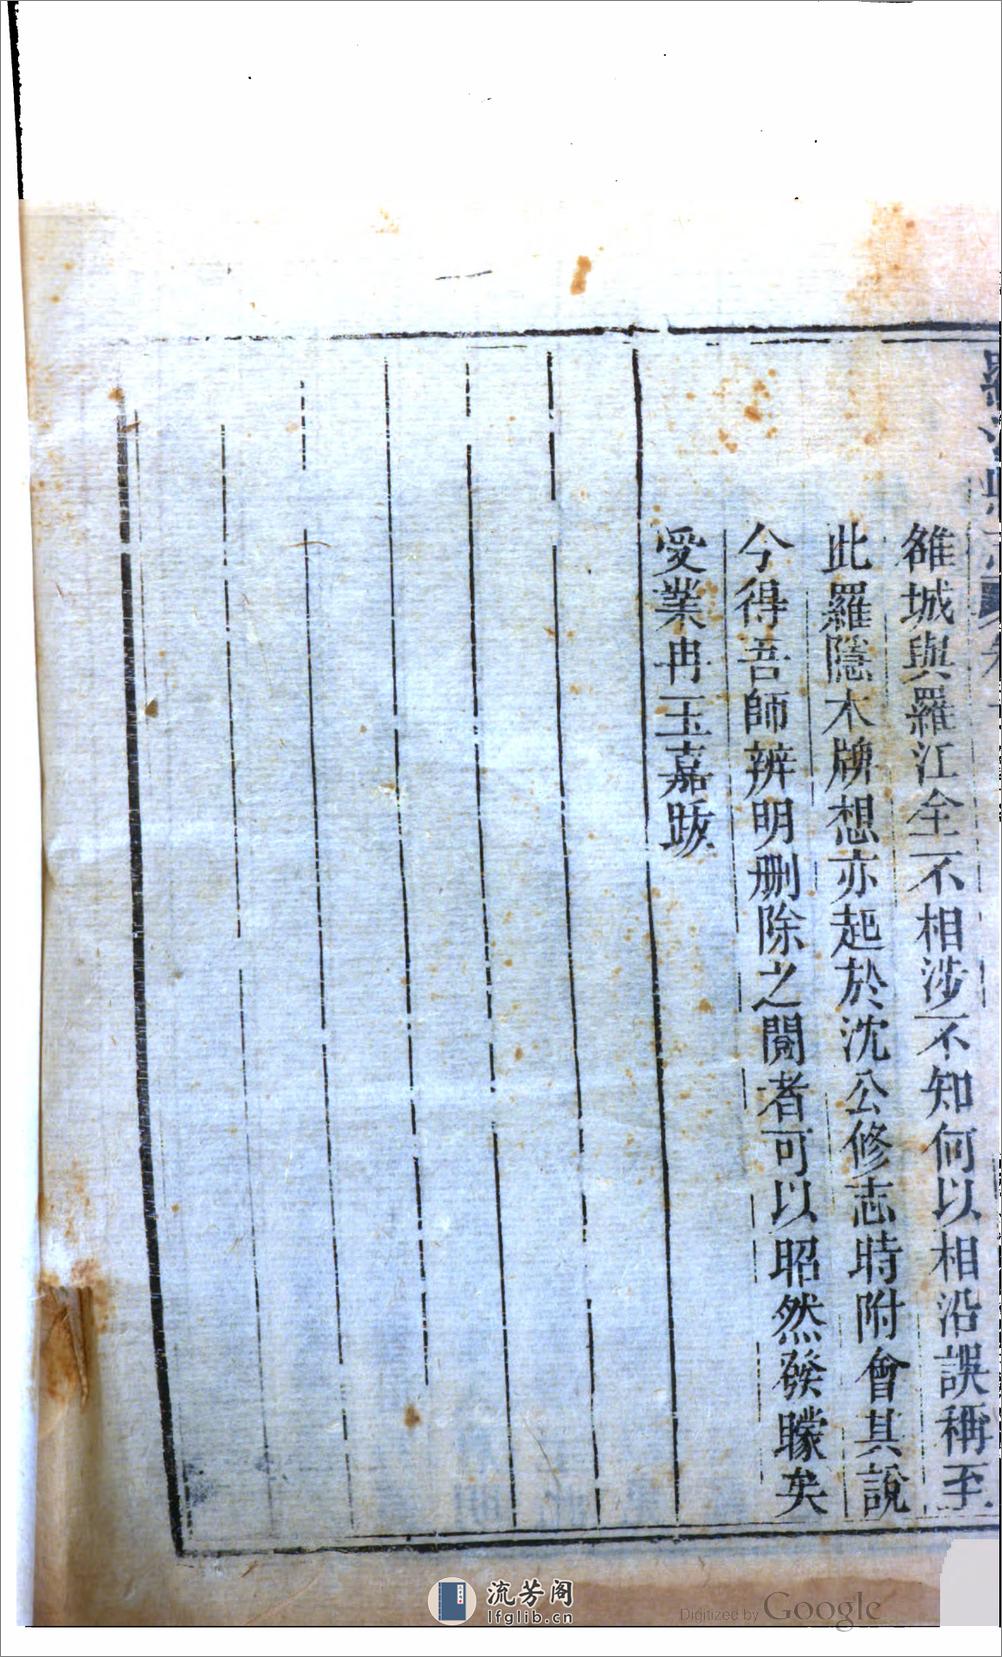 雒城與羅江全不相涉不知何以相沿誤稱至
此羅隱木牌想亦起於沈公修志時附會其說
今得吾師辨明刪除之閱者可以昭然發矇矣
受業冉玉嘉跋
流芳阁
lfglib.cn
Digitized by Google